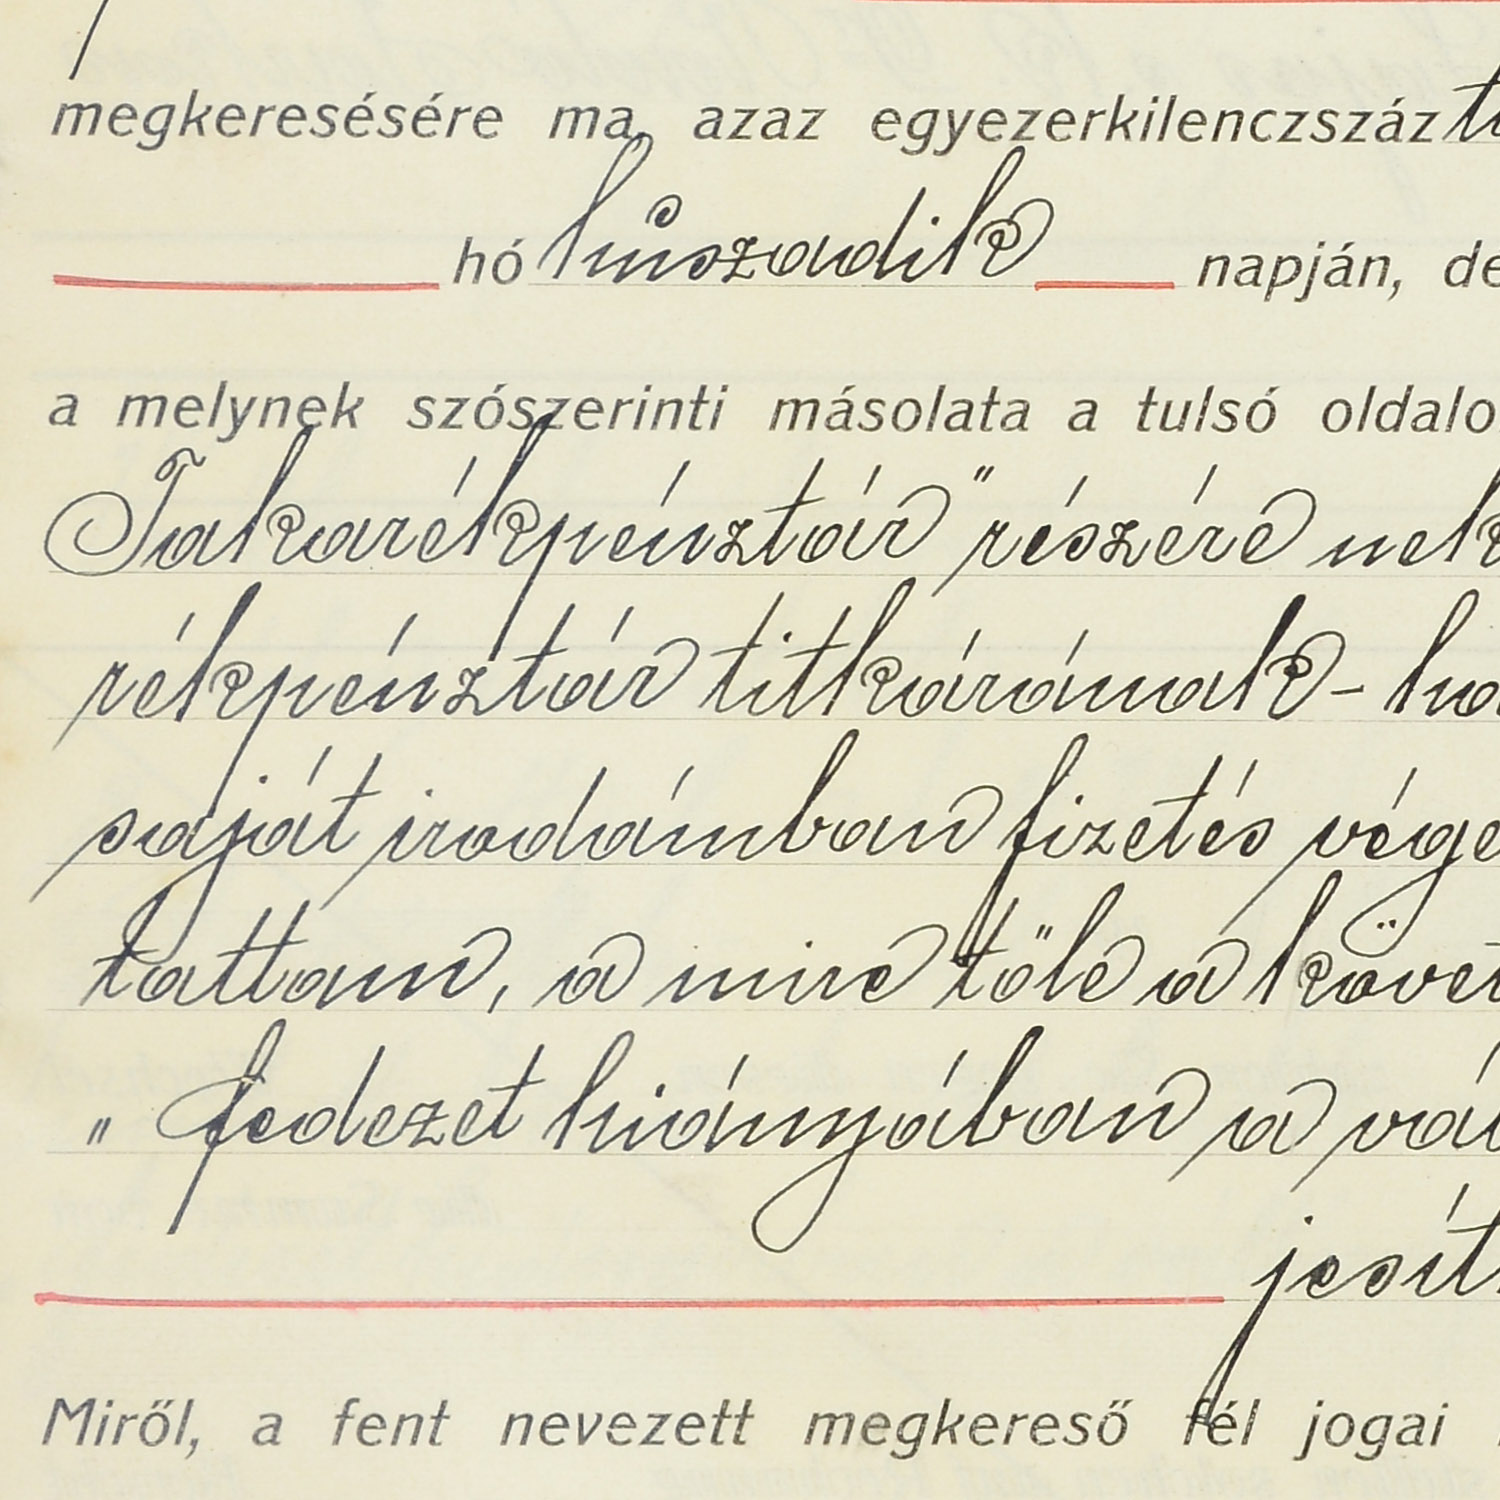 megkeresésére ma, azaz egyezerkilenczszáz
hó huszadik napján, de
a melynek szószerinti másolata a tulsó oldalo
Takarékpénztár" részére nek
rékpénztár titkárának - ha
saját irodámban fizetés vége
tattam, a mire tőle a követ
" fedezet hiányában a vá
jesít
Miről, a fent nevezett megkereső fél jogai